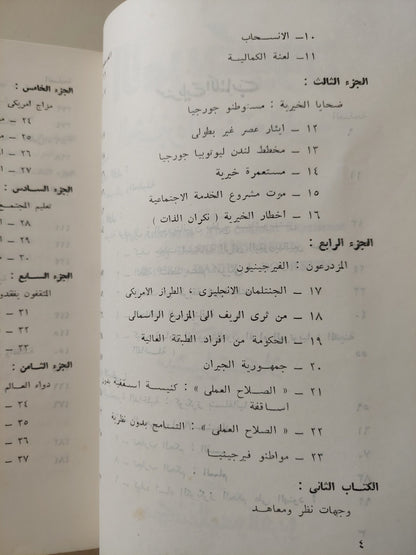 ١٠ ــ الانسحاب
١١ ــ لعنة الكمالية
الجزء الثالث :
ضحايا الخيرية : مستوطنو جورجيا
١٢ ــ ايثار عصر غير بطولى
١٣ ــ مخطط لندن ليوتوبيا جورجيا
١٤ ــ مستعمرة خيرية
١٥ ــ موت مشروع الخدمة الاجتماعية
١٦ ــ اخطار الخيرية ( نكران الذات )
الجزء الرابع :
المزدرعون : الفيرجينيون
١٧ ــ الجنتلمان الانجليزى ، الطراز الامريكى
١٨ ــ من ثرى الريف الى المزارع الراسمالى
١٩ ــ الحكومة من أفراد الطبقة الغالية
٢٠ ــ جمهورية الجيران
٢١ ــ « الصلاح العملى » : كنيسة اسقفية بدون
اساقفة
٢٢ ــ « الصلاح العملى » : التسامح بدون نظرية
٢٣ ــ مواطنو فيرجينيا
الكتاب الثانى :
وجهات نظر ومعاهد
٤
الجزء الخامس :
مزاج امريكى
٢٤ ــ
٢٥ ــ
٢٦ ــ
٢٧ ــ
الجزء السادس :
تعليم المجتمع
٢٨ ــ
٢٩ ــ
٣٠ ــ
الجزء السابع :
المثقفون يفقدون
٣١ ــ
٣٢ ــ
٣٣ ــ
الجزء الثامن :
دواء العالم
٣٤ ــ
٣٥ ــ
٣٦ ــ
٣٧ ــ